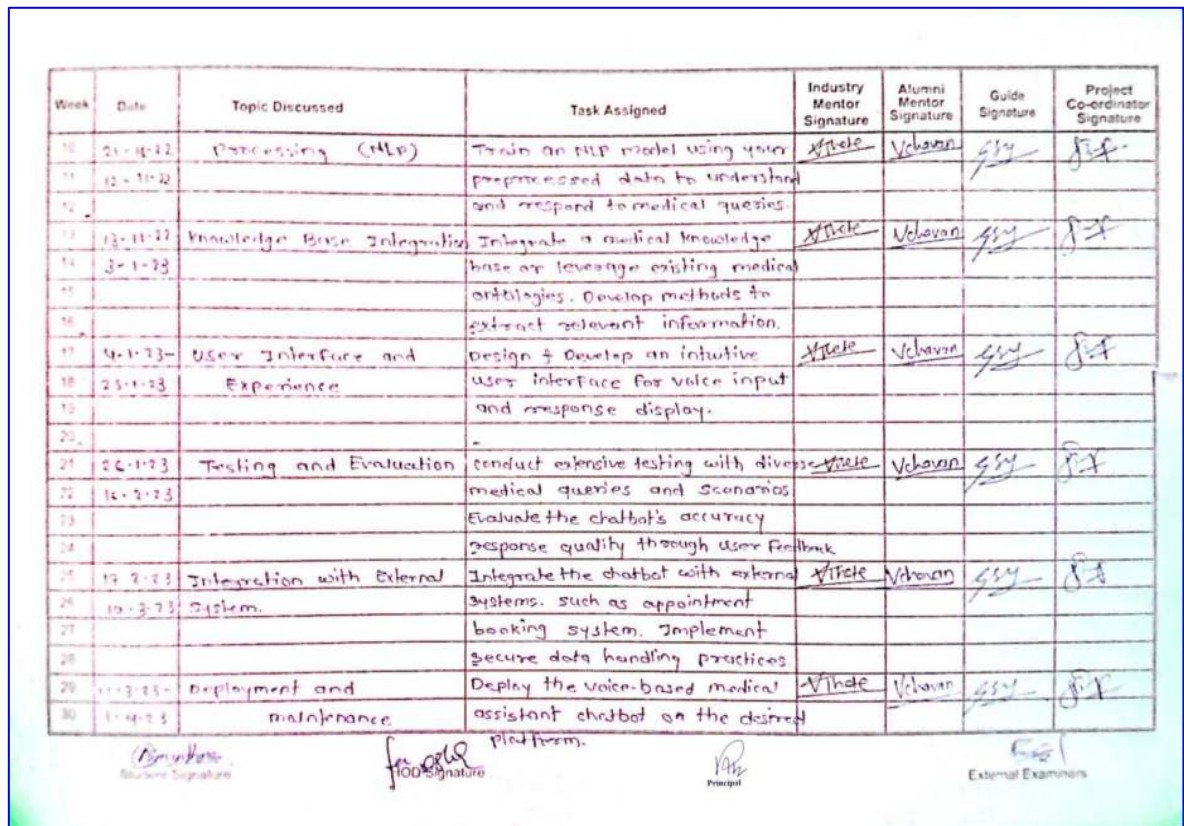 Week Date Topic Discussed Task Assigned Industry Mentor Signature Alumni Mentor Signature Guide Signature Project Co-ordinator Signature
10 Processing (NLP) Train an NLP model using your Vchavan
11 12-11-22 preprocessed data to understand
12 and respond to medical queries.
13 13-11-22 Knowledge Base Integration Integrate a medical knowledge Vchavan
14 3-1-23 base or leverage existing medical
15 ontologies. Develop methods to
16 extract relevant information.
17 4-1-23- User Interface and Design & Develop an intutive Vchavan
18 25-1-23 Experience user interface for voice input
19 and response display.
20
21 26-1-23 Testing and Evaluation conduct extensive testing with diverse Vchavan
22 16-2-23 medical queries and scenarios
23 Evaluate the chatbot's accuracy
24 response quality through user Feedback
25 17 2-23 Integration with External Integrate the chatbot with external Vchavan
26 10-3-23 System. systems. such as appointment
27 booking system. Implement
28 secure data handling practices
29 11-3-23- Deployment and Deploy the voice-based medical Vchavan
30 1-4-23 maintenance assistant chatbot on the desired
platform.
Student Signature HOD Signature Principal External Examiners